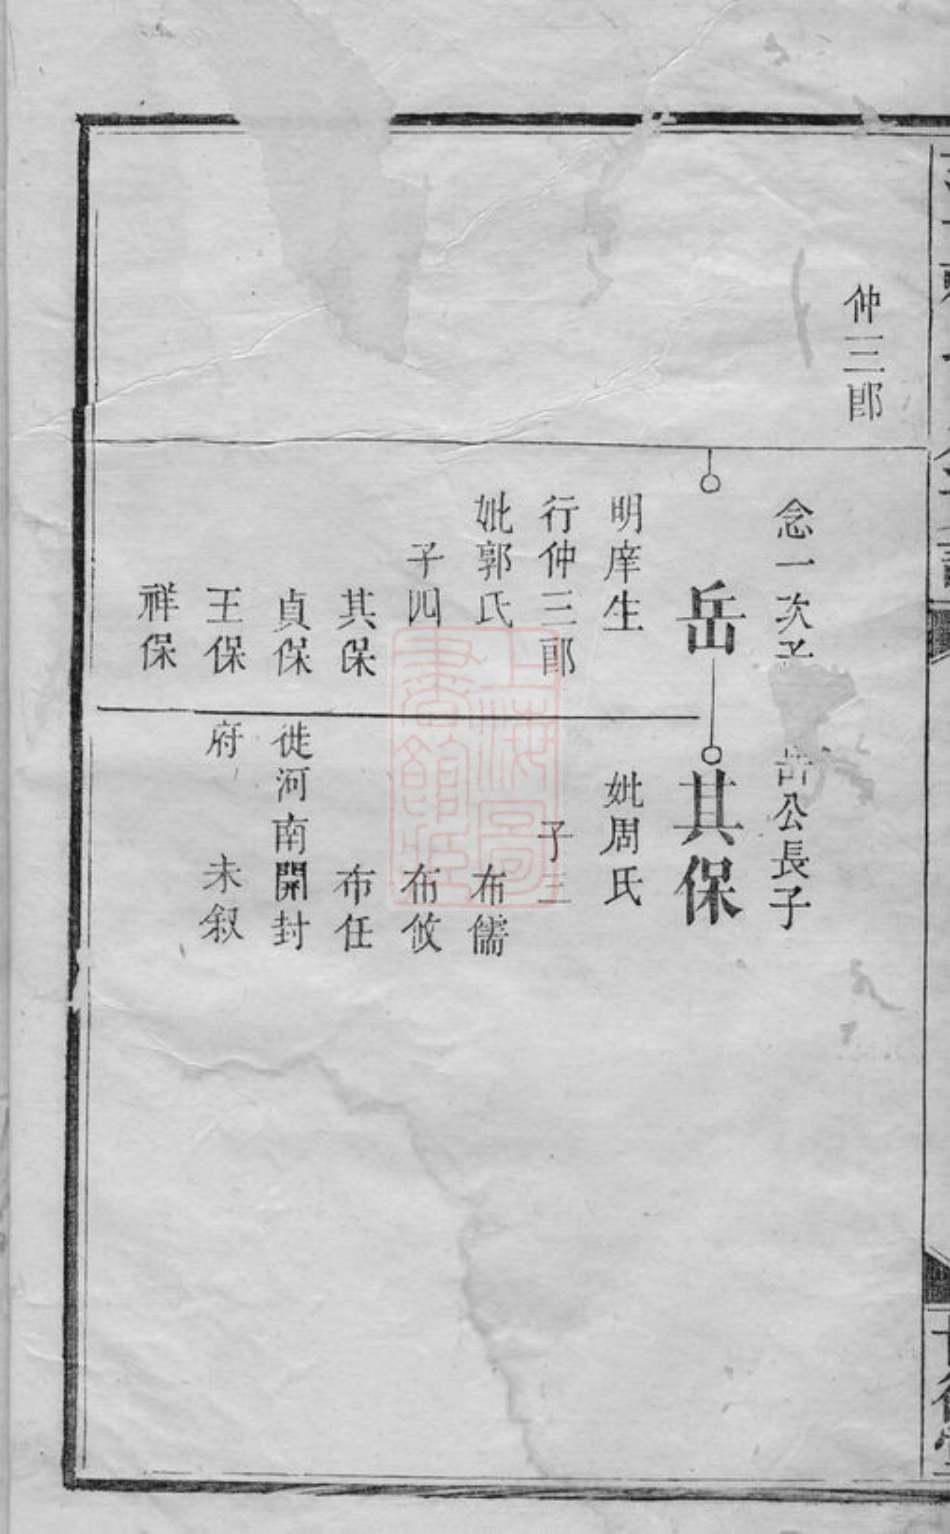 仲三郎
念一次子
岳
明庠生
行仲三郎
妣郭氏
子四
其保
貞保
王保
祥保
岳公長子
其保
妣周氏
子三
布儒
布攸
布任
徙河南開封
府
未叙